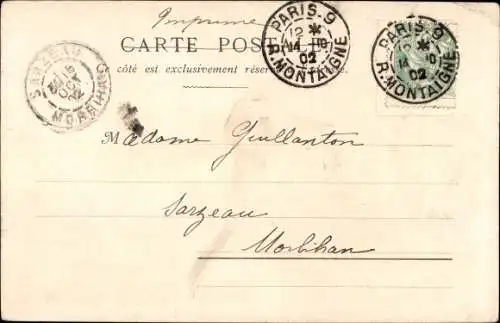 Imprimé
CARTE POSTALE
Ce côté est exclusivement réservé à l'adresse.
PARIS-9
12 *
14 -10
02
R. MONTAIGNE
PARIS-9
12 *
14 10
02
R. MONTAIGNE
SARZEAU
15
OCT
MORBIHAN
Madame Guillanton
Sarzeau
Morbihan